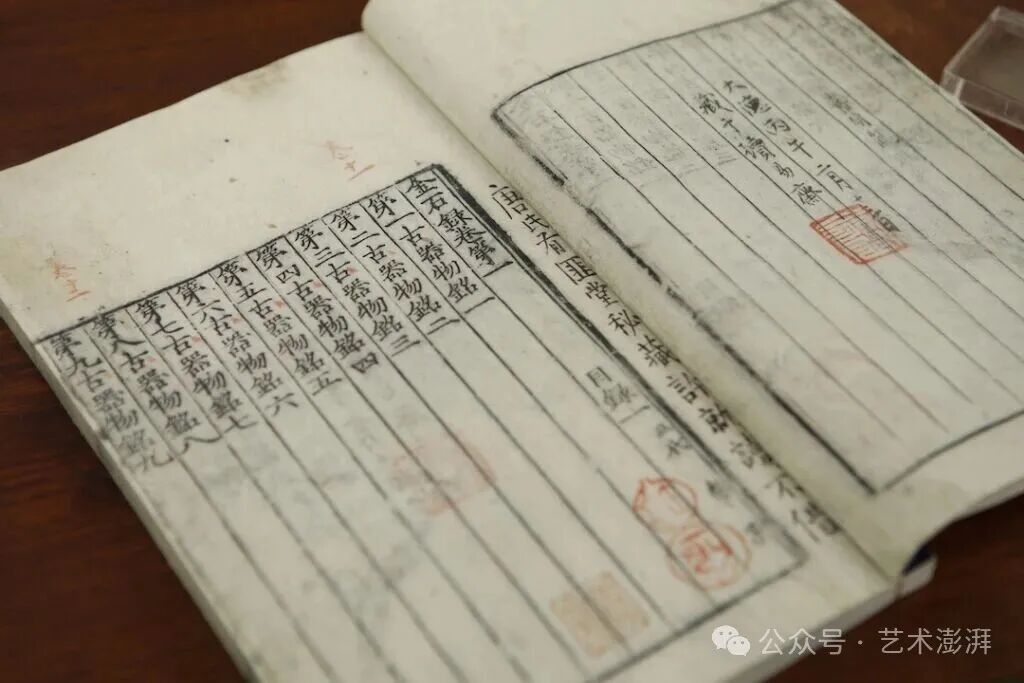 大德丙午二月十
于讀易齋
唐氏有匪堂秘藏
不借
金石録卷第一
目録一
第一古器物銘一
第二古器物銘二
第三古器物銘三
第四古器物銘四
第五古器物銘五
第六古器物銘六
第七古器物銘七
第八古器物銘八
第九古器物銘九
公众号 · 艺术澎湃